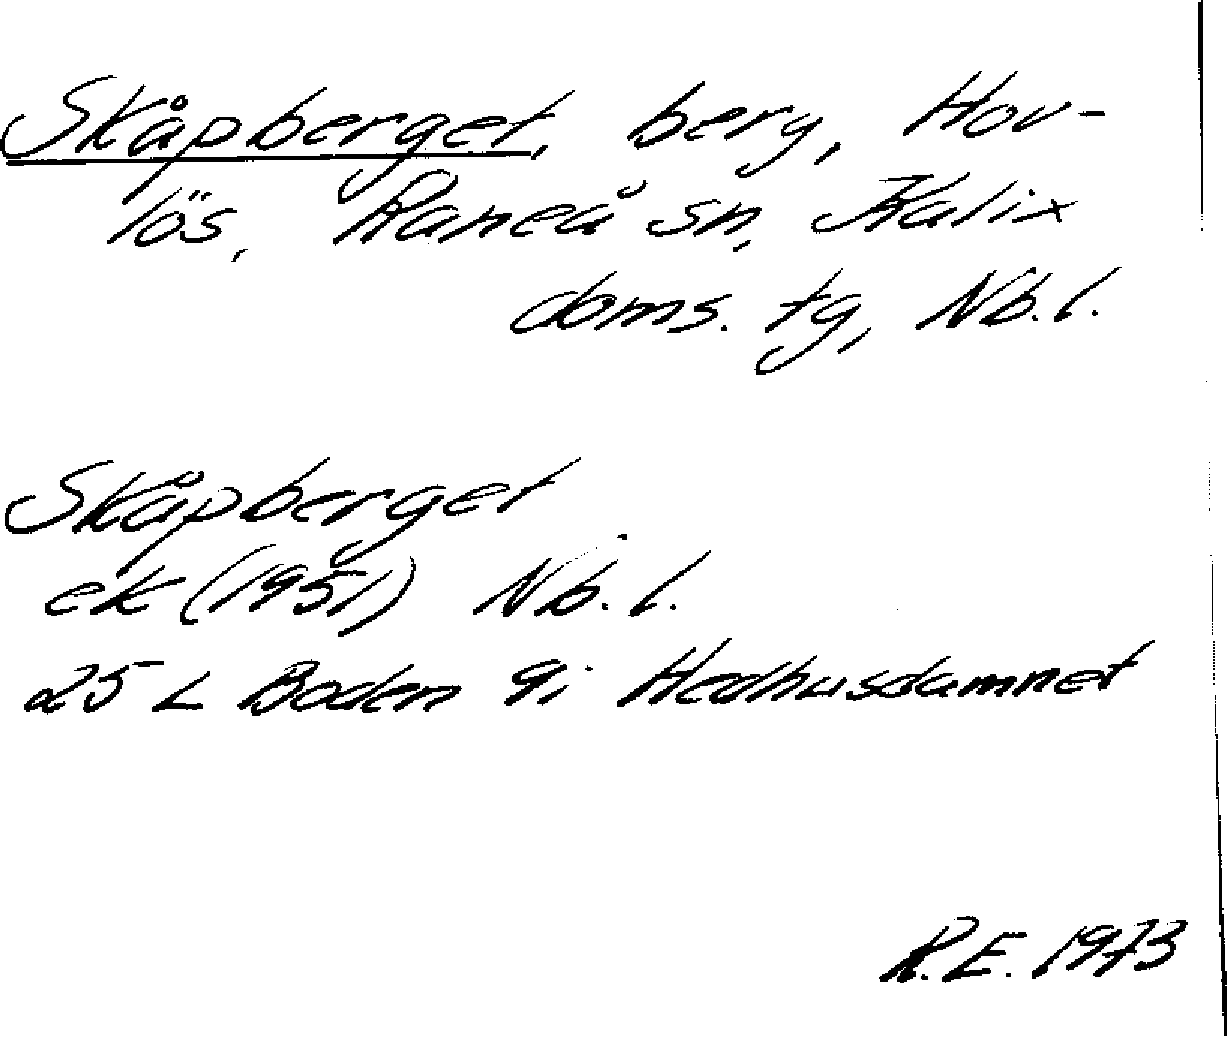 Skåpberget, berg, Hov-
lös, Raneå sn, Kalix
doms. tg, Nb.l.
Skåpberget
ek (1951) Nb. l.
25 L Boden 9i Hedhusdamnet
R.E. 1973